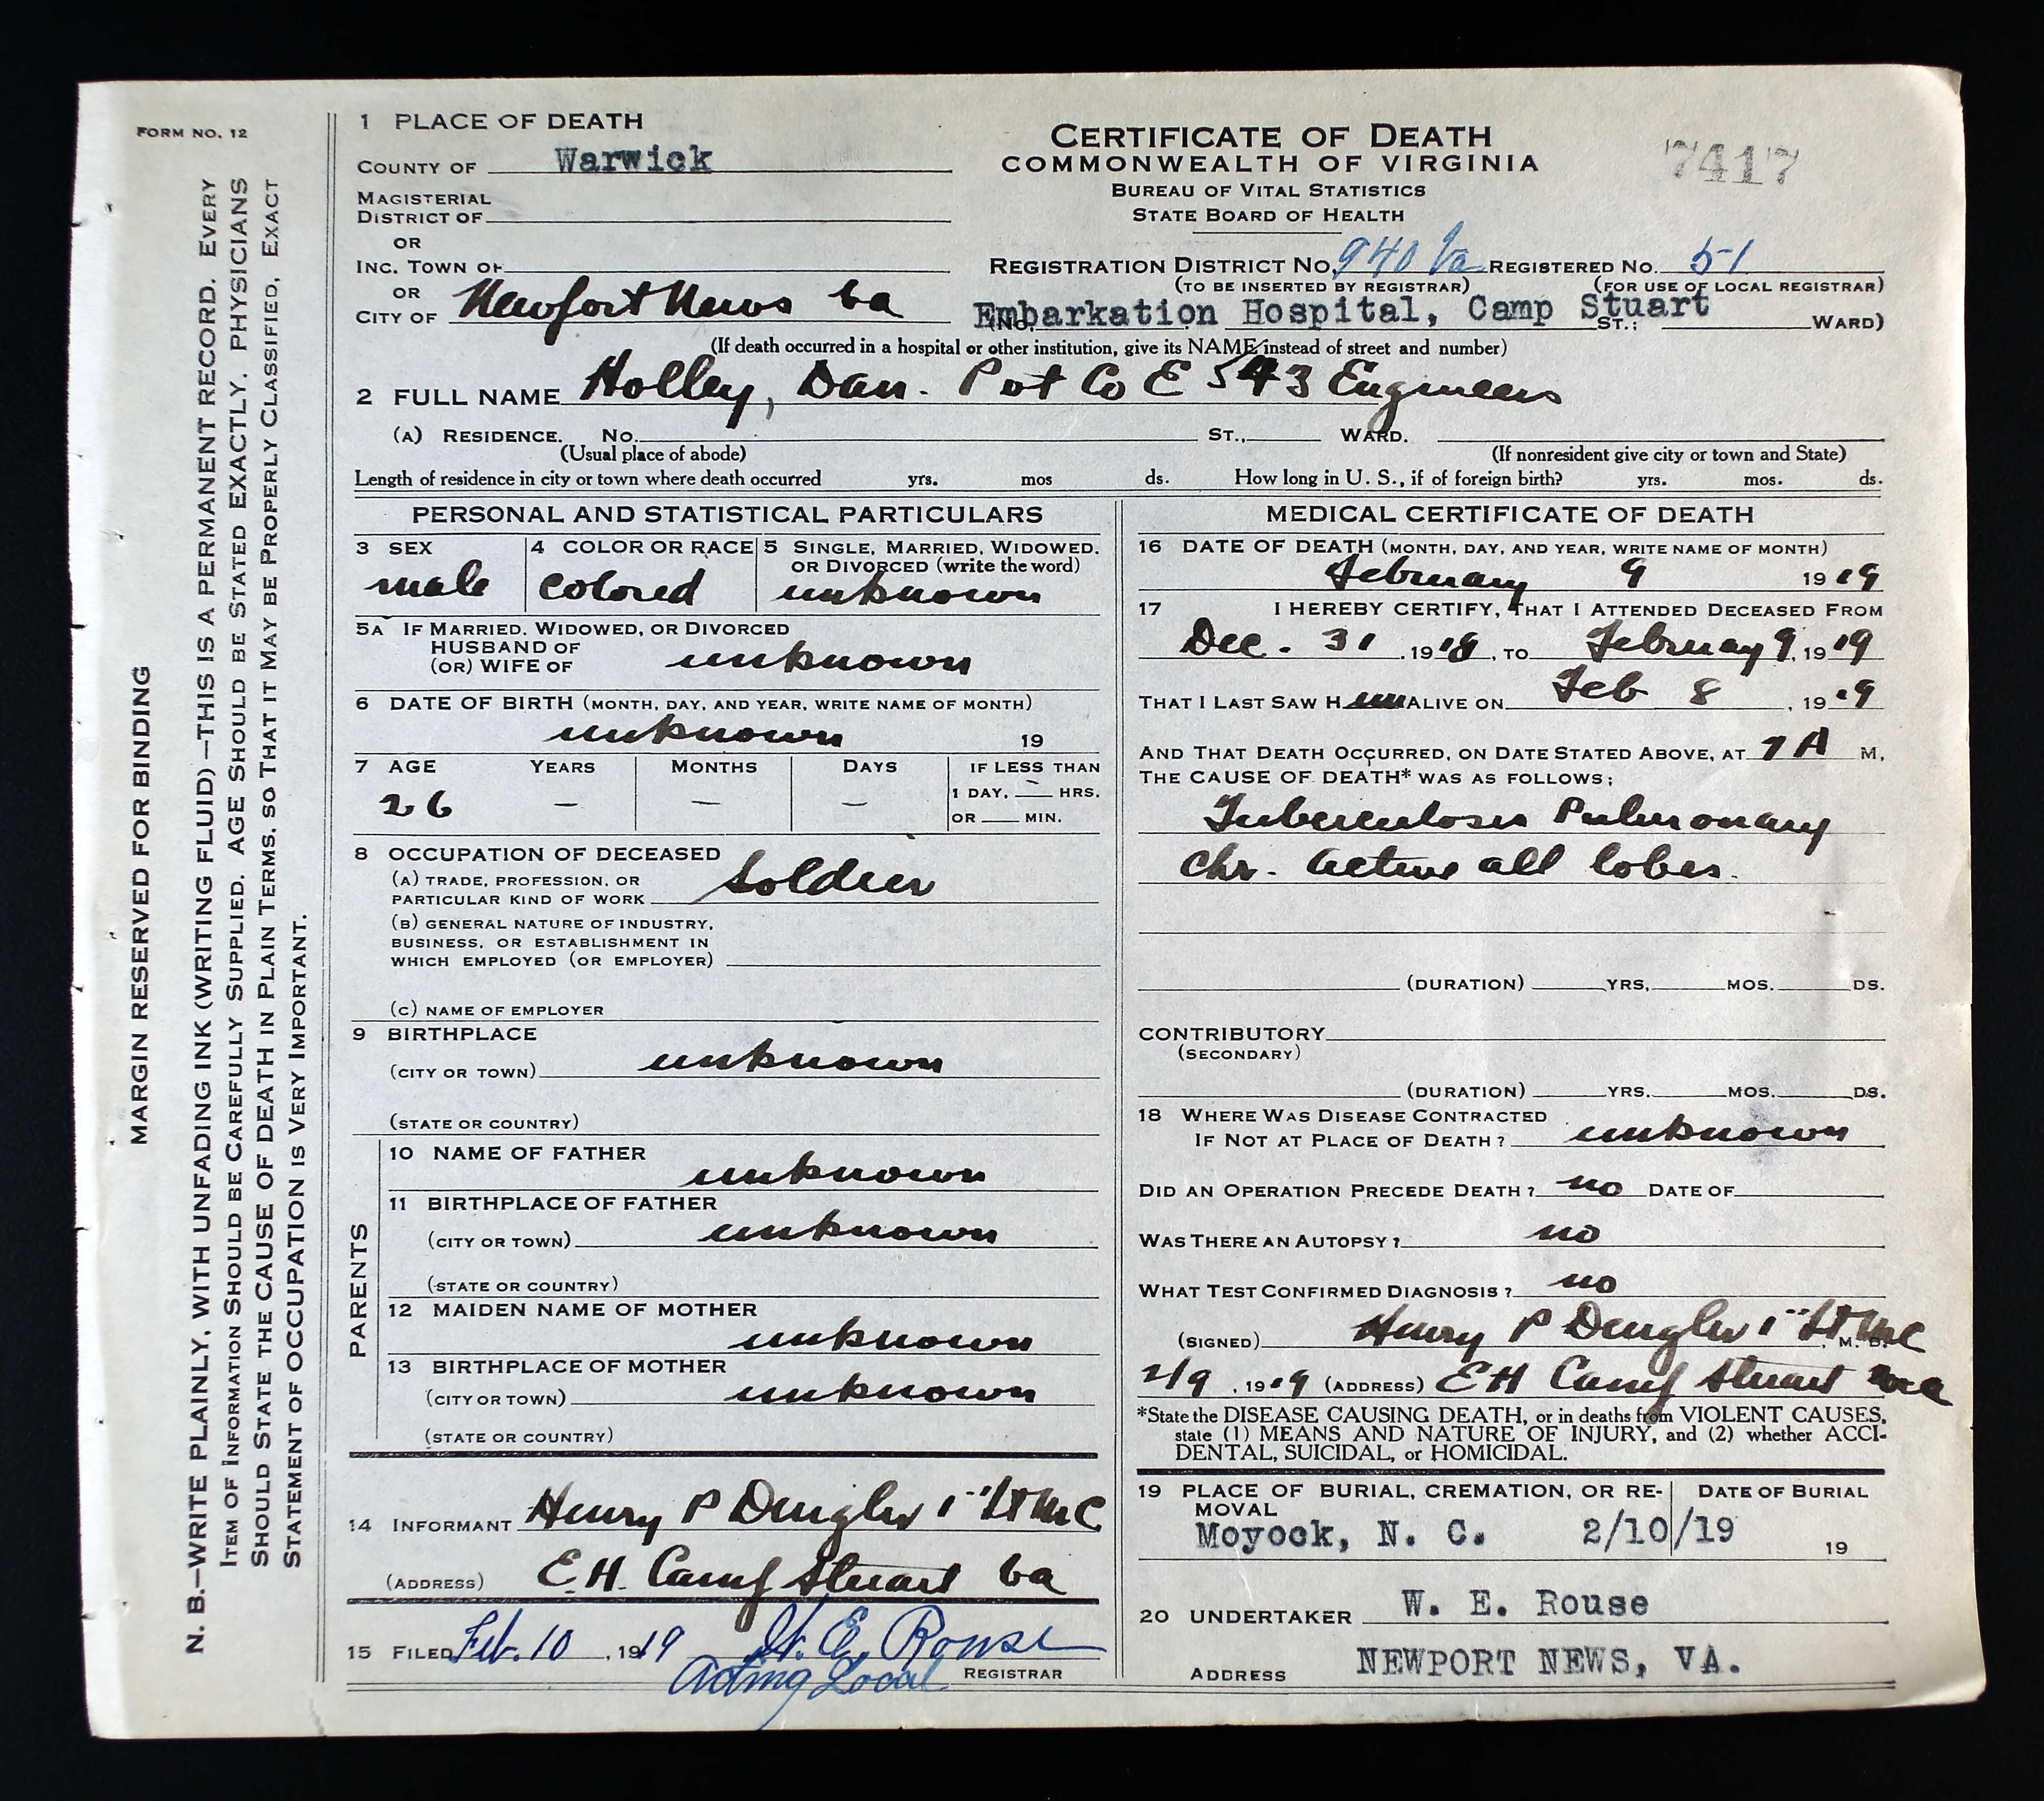 FORM NO. 12
MARGIN RESERVED FOR BINDING
N. B.—WRITE PLAINLY, WITH UNFADING INK (WRITING FLUID)—THIS IS A PERMANENT RECORD. EVERY
ITEM OF INFORMATION SHOULD BE CAREFULLY SUPPLIED. AGE SHOULD BE STATED EXACTLY. PHYSICIANS
SHOULD STATE THE CAUSE OF DEATH IN PLAIN TERMS, SO THAT IT MAY BE PROPERLY CLASSIFIED, EXACT
STATEMENT OF OCCUPATION IS VERY IMPORTANT.
1 PLACE OF DEATH
COUNTY OF Warwick
MAGISTERIAL
DISTRICT OF
OR
INC. TOWN OF
OR
CITY OF Newport News Va
CERTIFICATE OF DEATH
COMMONWEALTH OF VIRGINIA
BUREAU OF VITAL STATISTICS
STATE BOARD OF HEALTH
7417
REGISTRATION DISTRICT NO. 940 Va REGISTERED NO. 51
(TO BE INSERTED BY REGISTRAR) (FOR USE OF LOCAL REGISTRAR)
(No. Embarkation Hospital, Camp Stuart ST.; WARD)
(If death occurred in a hospital or other institution, give its NAME instead of street and number)
2 FULL NAME Holley, Dan. Pvt Co E 543 Engineers
(A) RESIDENCE. No. ST., WARD.
(Usual place of abode) (If nonresident give city or town and State)
Length of residence in city or town where death occurred yrs. mos ds. How long in U. S., if of foreign birth? yrs. mos. ds.
PERSONAL AND STATISTICAL PARTICULARS
3 SEX 4 COLOR OR RACE 5 SINGLE, MARRIED, WIDOWED,
OR DIVORCED (write the word)
male colored unknown
5A IF MARRIED, WIDOWED, OR DIVORCED
HUSBAND OF
(OR) WIFE OF unknown
6 DATE OF BIRTH (MONTH, DAY, AND YEAR, WRITE NAME OF MONTH)
unknown 19
7 AGE YEARS MONTHS DAYS IF LESS THAN
26 — — — 1 DAY, — HRS.
OR MIN.
8 OCCUPATION OF DECEASED
(A) TRADE, PROFESSION, OR
PARTICULAR KIND OF WORK Soldier
(B) GENERAL NATURE OF INDUSTRY,
BUSINESS, OR ESTABLISHMENT IN
WHICH EMPLOYED (OR EMPLOYER)
(C) NAME OF EMPLOYER
9 BIRTHPLACE
(CITY OR TOWN) unknown
(STATE OR COUNTRY)
PARENTS
10 NAME OF FATHER unknown
11 BIRTHPLACE OF FATHER
(CITY OR TOWN) unknown
(STATE OR COUNTRY)
12 MAIDEN NAME OF MOTHER
unknown
13 BIRTHPLACE OF MOTHER
(CITY OR TOWN) unknown
(STATE OR COUNTRY)
14 INFORMANT Henry P 1st Lt MC
(ADDRESS) E.H. Camp Stuart Va
15 FILED Feb. 10, 1919 W. E. Rouse
Acting Local REGISTRAR
MEDICAL CERTIFICATE OF DEATH
16 DATE OF DEATH (MONTH, DAY, AND YEAR, WRITE NAME OF MONTH)
February 9 1919
17 I HEREBY CERTIFY, THAT I ATTENDED DECEASED FROM
Dec. 31, 1918, TO February 9, 1919
THAT I LAST SAW H im ALIVE ON Feb 8, 1919
AND THAT DEATH OCCURRED, ON DATE STATED ABOVE, AT 7 A M.
THE CAUSE OF DEATH* WAS AS FOLLOWS;
Tuberculosis Pulmonary
Chr. active all lobes.
(DURATION) YRS. MOS. DS.
CONTRIBUTORY
(SECONDARY)
(DURATION) YRS. MOS. DS.
18 WHERE WAS DISEASE CONTRACTED
IF NOT AT PLACE OF DEATH? unknown
DID AN OPERATION PRECEDE DEATH? no DATE OF
WAS THERE AN AUTOPSY? no
WHAT TEST CONFIRMED DIAGNOSIS? no
(SIGNED) Henry P 1st Lt MC, M. D.
2/9, 1919 (ADDRESS) EH Camp Stuart
*State the DISEASE CAUSING DEATH, or in deaths from VIOLENT CAUSES,
state (1) MEANS AND NATURE OF INJURY, and (2) whether ACCI-
DENTAL, SUICIDAL, or HOMICIDAL.
19 PLACE OF BURIAL, CREMATION, OR RE- DATE OF BURIAL
MOVAL
Moyock, N. C. 2/10/19 19
20 UNDERTAKER W. E. Rouse
ADDRESS NEWPORT NEWS, VA.